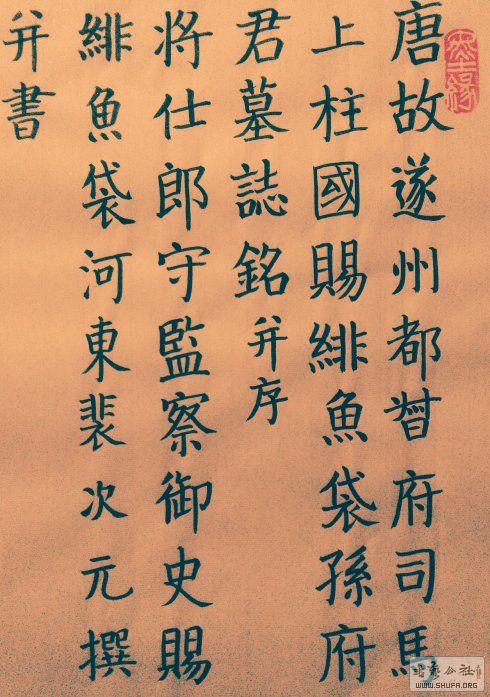 唐故遂州都督府司馬
上柱國賜緋魚袋孫府
君墓誌銘并序
将仕郎守監察御史賜
緋魚袋河東裴次元撰
并書
WWW.SHUFA.ORG